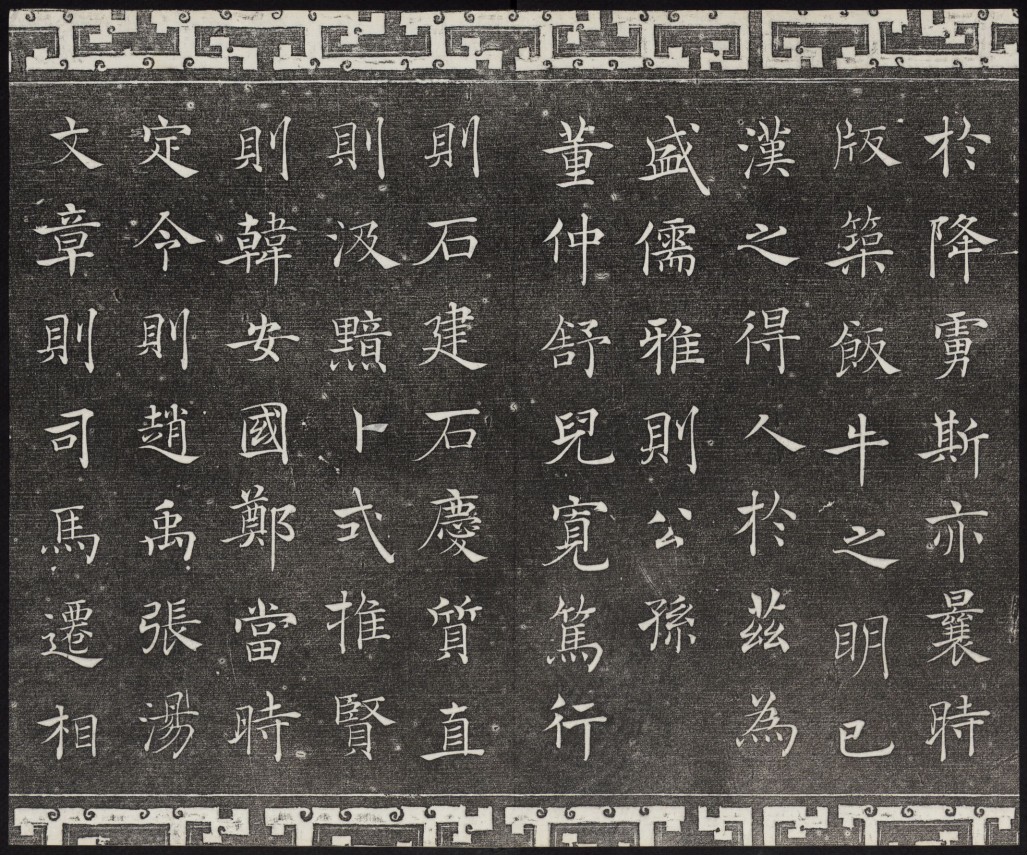 於降虜斯亦曩時
版築飯牛之明已
漢之得人於茲為
盛儒雅則公孫
董仲舒兒寬篤行
則石建石慶質直
則汲黯卜式推賢
則韓安國鄭當時
定令則趙禹張湯
文章則司馬遷相